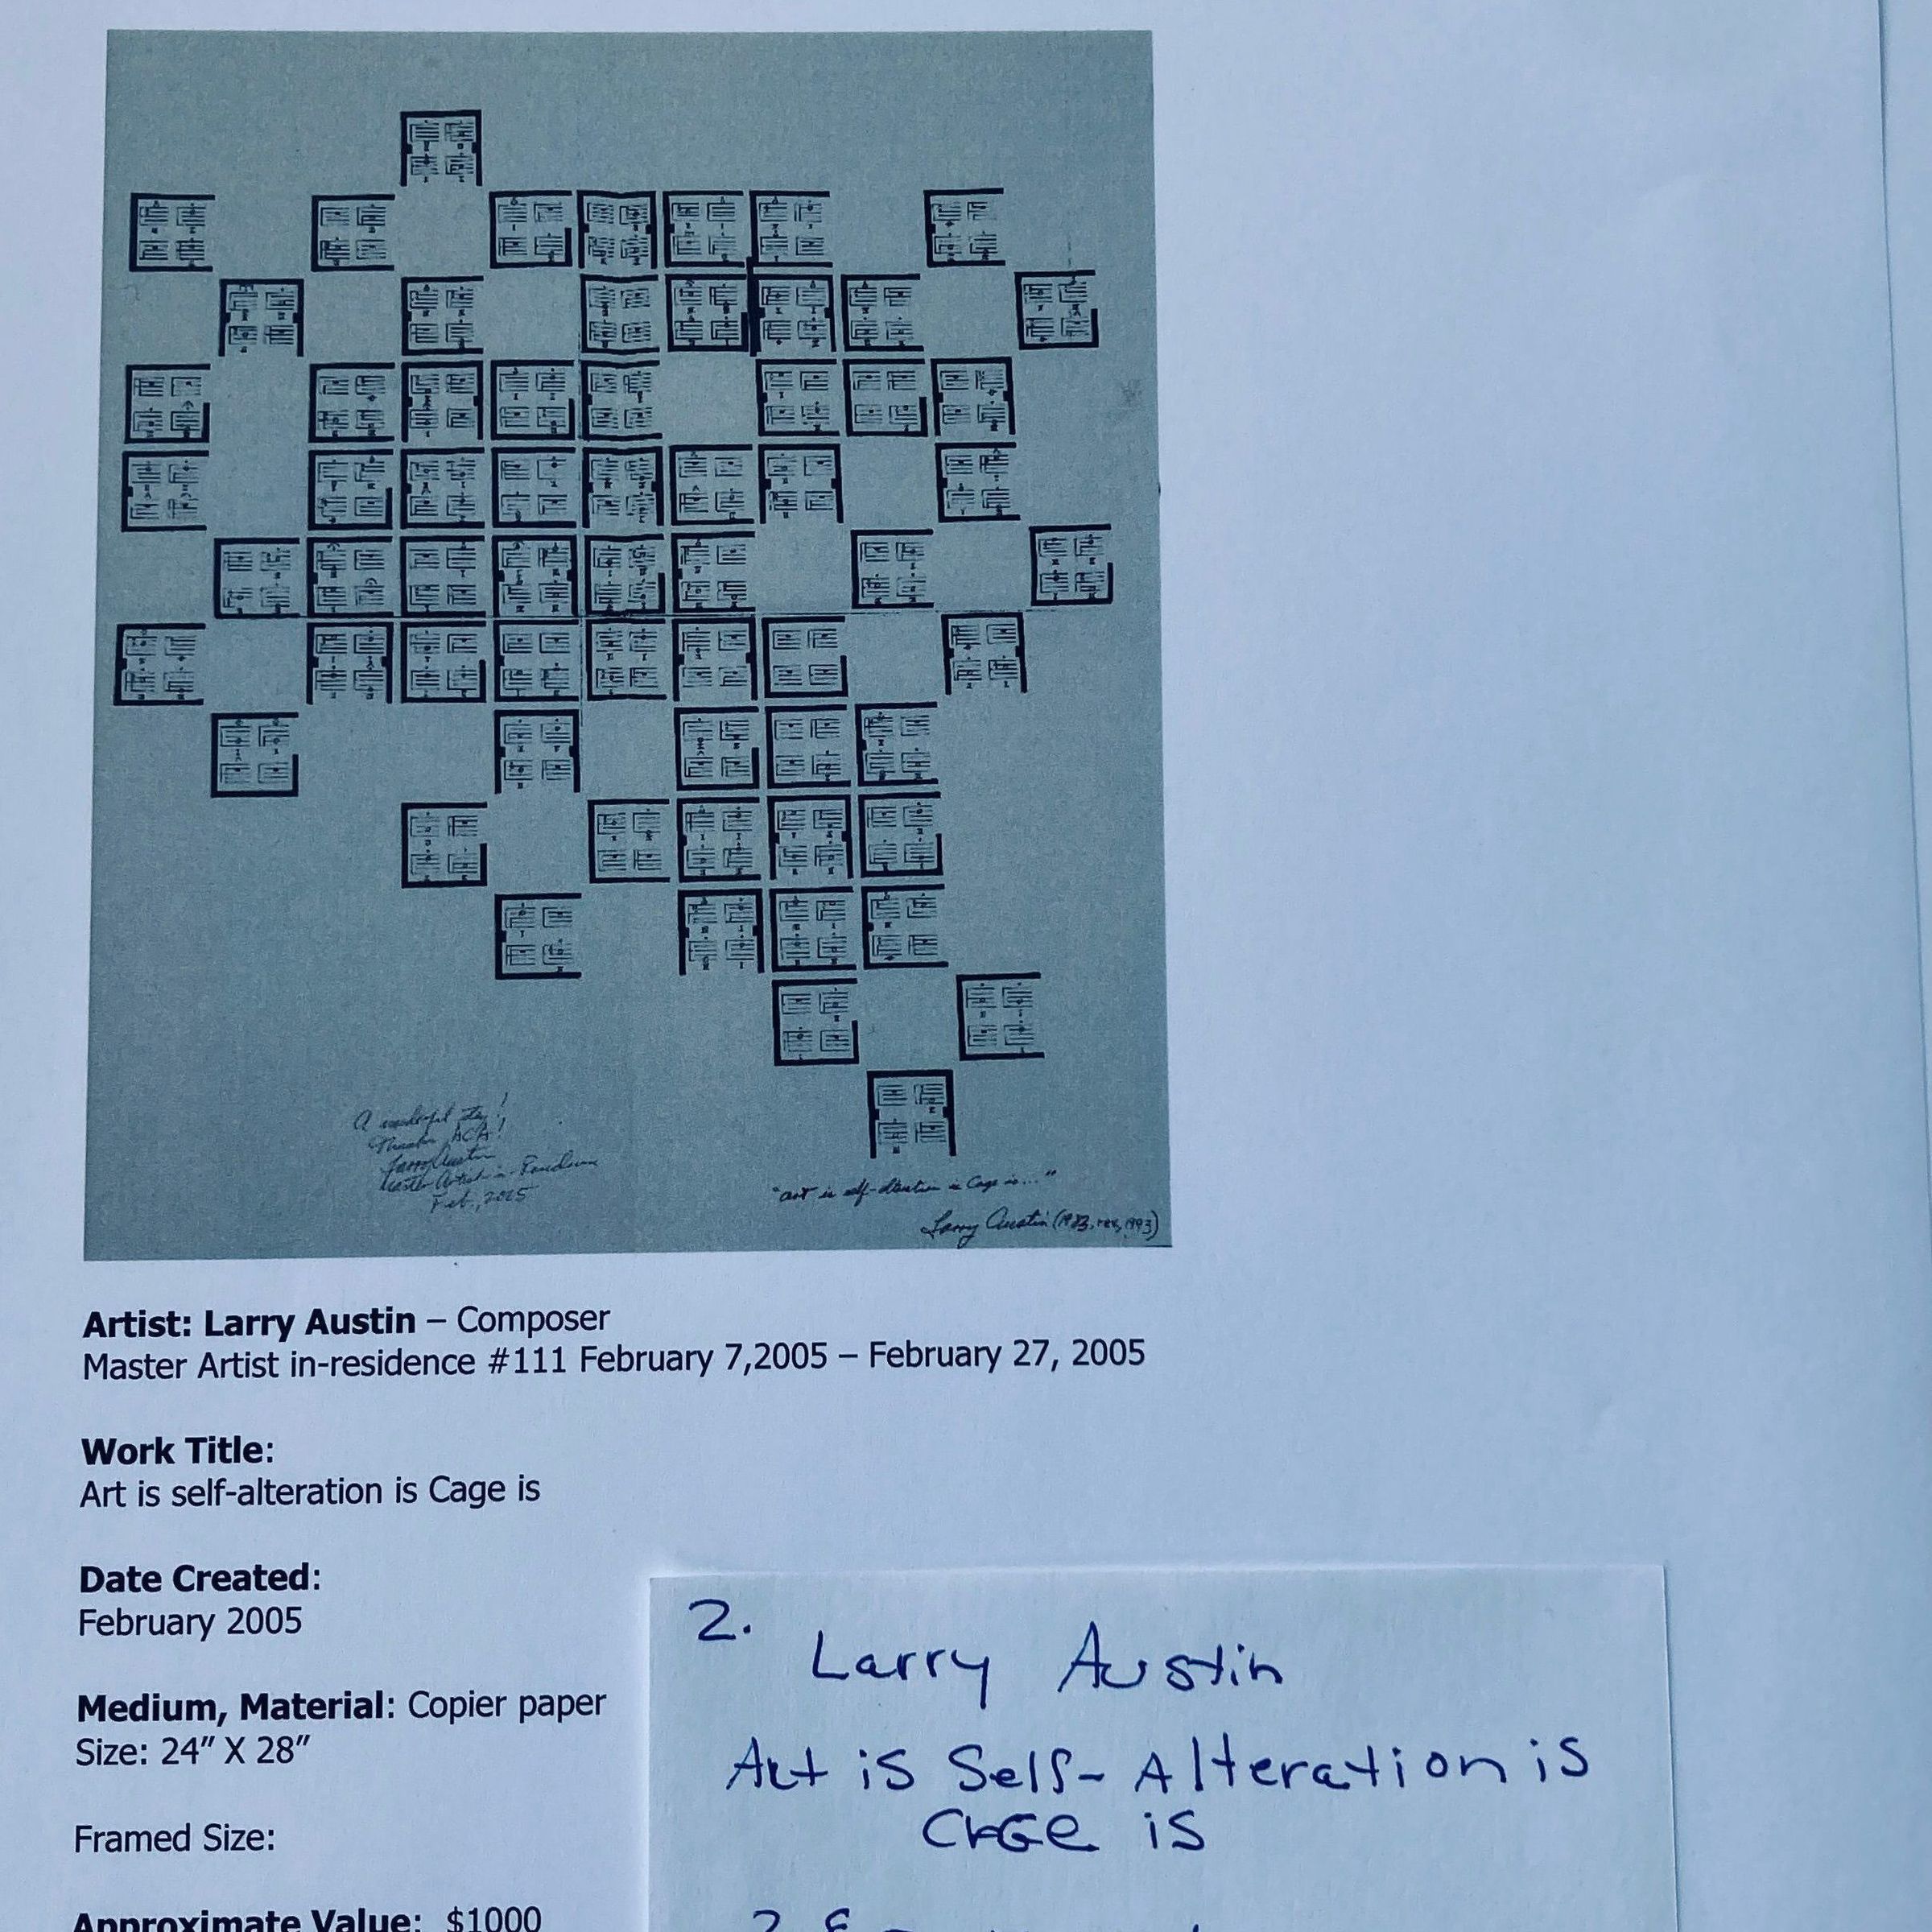 A wonderful stay!
Thanks ACA!
Larry Austin
Master Artist-in-Residence
Feb., 2005
"art is self-alteration is Cage is..."
Larry Austin (1983, rev, 1993)
Artist: Larry Austin – Composer
Master Artist in-residence #111 February 7,2005 – February 27, 2005
Work Title:
Art is self-alteration is Cage is
Date Created:
February 2005
Medium, Material: Copier paper
Size: 24” X 28”
Framed Size:
Approximate Value: $1000
2.
Larry Austin
Art is Self-Alteration is
CAGe is